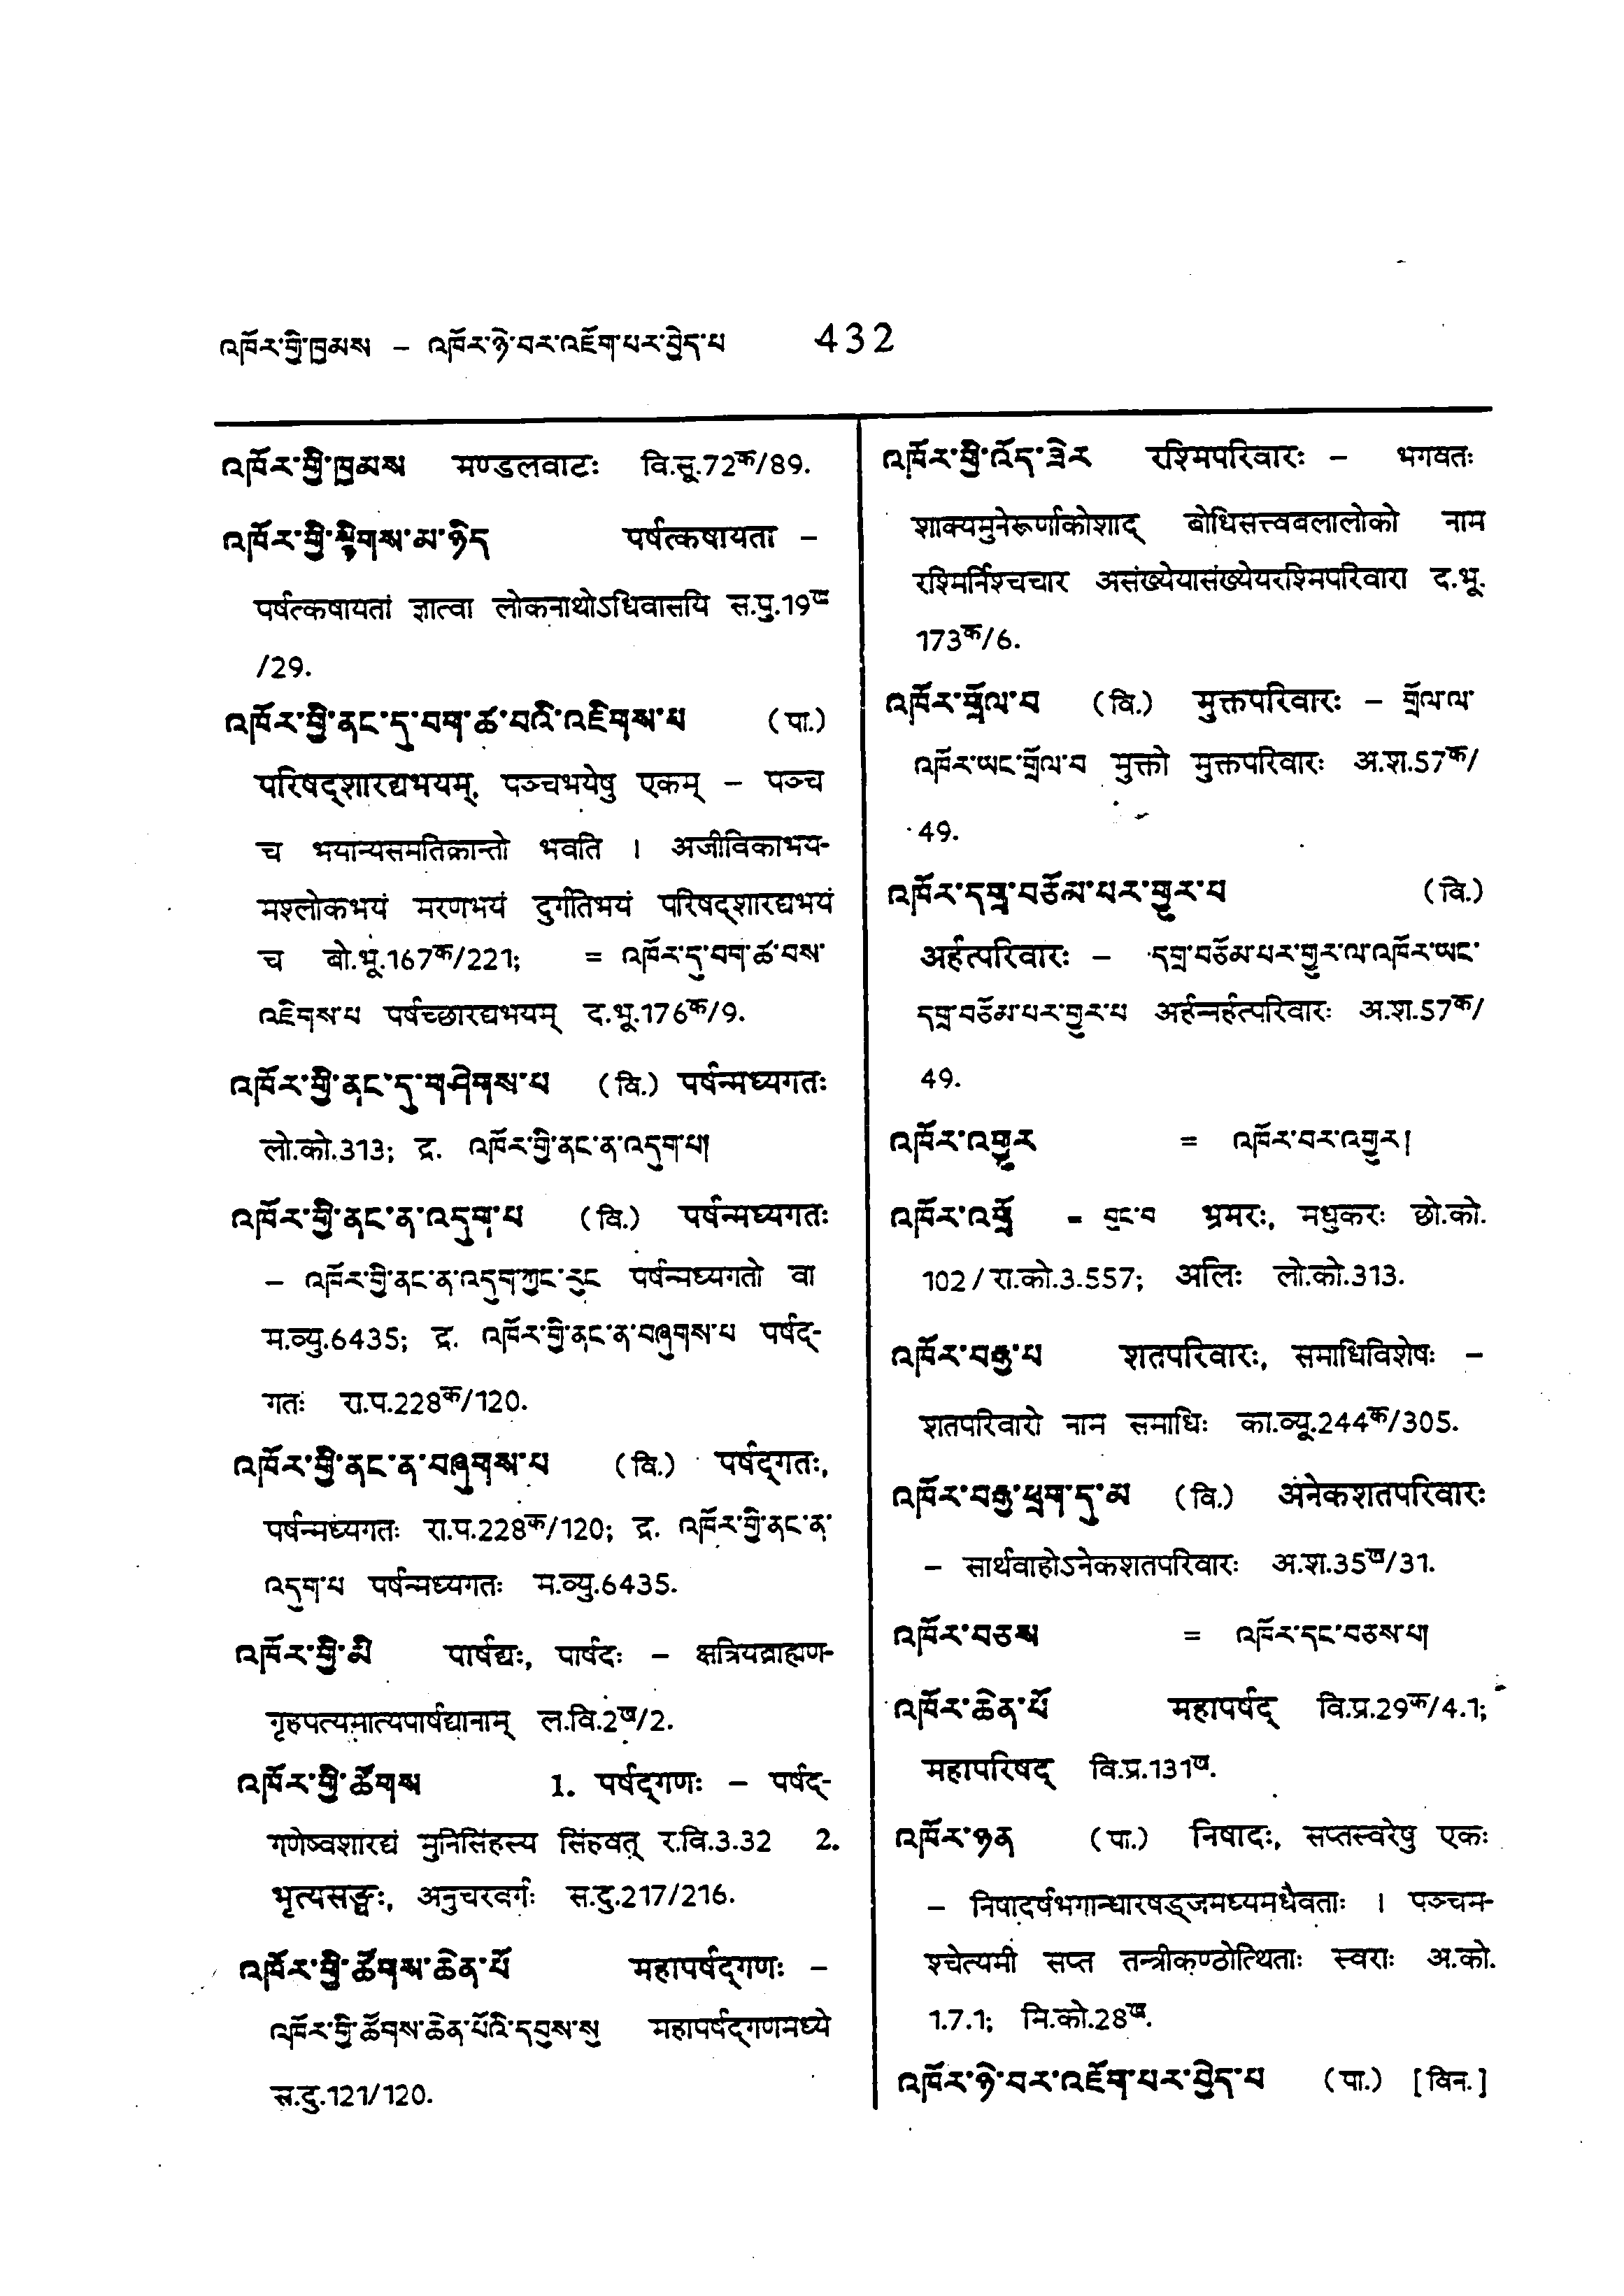 འཁོར་གྱི་ཁྲམས – འཁོར་ཉེ་བར་འཇོག་པར་བྱེད་པ 432
འཁོར་གྱི་ཁྲམས मण्डलवाटः वि.सू.72क/89.
འཁོར་གྱི་སྙིགས་མ་ཉིད पर्षत्कषायता –
पर्षत्कषायतां ज्ञात्वा लोकनाथोऽधिवासयि स.पु.19ख
/29.
འཁོར་གྱི་ནང་དུ་བག་ཚ་བའི་འཇིགས་པ (पा.)
परिषद्शारद्यभयम्, पञ्चभयेषु एकम् – पञ्च
च भयान्यसमतिक्रान्तो भवति । अजीविकाभय-
मश्लोकभयं मरणभयं दुर्गतिभयं परिषद्शारद्यभयं
च बो.भू.167क/221; = འཁོར་དུ་བག་ཚ་བས་
འཇིགས་པ पर्षच्छारद्यभयम् द.भू.176क/9.
འཁོར་གྱི་ནང་དུ་གཤེགས་པ (वि.) पर्षन्मध्यगतः
लो.को.313; द्र. འཁོར་གྱི་ནང་ན་འདུག་པ།
འཁོར་གྱི་ནང་ན་འདུག་པ (वि.) पर्षन्मध्यगतः
– འཁོར་གྱི་ནང་ན་འདུག་ཀྱང་རུང पर्षन्मध्यगतो वा
म.व्यु.6435; द्र. འཁོར་གྱི་ནང་ན་བཞུགས་པ पर्षद्-
गतः रा.प.228क/120.
འཁོར་གྱི་ནང་ན་བཞུགས་པ (वि.) पर्षद्गतः,
पर्षन्मध्यगतः रा.प.228क/120; द्र. འཁོར་གྱི་ནང་ན་
འདུག་པ पर्षन्मध्यगतः म.व्यु.6435.
འཁོར་གྱི་མི पार्षद्यः, पार्षदः – क्षत्रियब्राह्मण-
गृहपत्यमात्यपार्षद्यानाम् ल.वि.2ख/2.
འཁོར་གྱི་ཚོགས 1. पर्षद्गणः – पर्षद्-
गणेष्वशारद्यं मुनिसिंहस्य सिंहवत् र.वि.3.32 2.
भृत्यसङ्घः, अनुचरवर्गः स.दु.217/216.
འཁོར་གྱི་ཚོགས་ཆེན་པོ महापर्षद्गणः –
འཁོར་གྱི་ཚོགས་ཆེན་པོའི་དབུས་སུ महापर्षद्गणमध्ये
स.दु.121/120.
འཁོར་གྱི་འོད་ཟེར रश्मिपरिवारः – भगवतः
शाक्यमुनेरूर्णाकोशाद् बोधिसत्त्वबलालोको नाम
रश्मिर्निश्चचार असंख्येयासंख्येयरश्मिपरिवारा द.भू.
173क/6.
འཁོར་གྲོལ་བ (वि.) मुक्तपरिवारः – གྲོལ་ལ་
འཁོར་ཡང་གྲོལ་བ मुक्तो मुक्तपरिवारः अ.श.57क/
49.
འཁོར་དགྲ་བཅོམ་པར་གྱུར་པ (वि.)
अर्हत्परिवारः – དགྲ་བཅོམ་པར་གྱུར་ལ་འཁོར་ཡང་
དགྲ་བཅོམ་པར་གྱུར་པ अर्हन्नर्हत्परिवारः अ.श.57क/
49.
འཁོར་འགྱུར = འཁོར་བར་འགྱུར།
འཁོར་འགྲོ = བུང་བ भ्रमरः, मधुकरः छो.को.
102/रा.को.3.557; अलिः लो.को.313.
འཁོར་བརྒྱ་པ शतपरिवारः, समाधिविशेषः –
शतपरिवारो नाम समाधिः का.व्यू.244क/305.
འཁོར་བརྒྱ་ཕྲག་དུ་མ (वि.) अनेकशतपरिवारः
– सार्थवाहोऽनेकशतपरिवारः अ.श.35ख/31.
འཁོར་བཅས = འཁོར་དང་བཅས་པ།
འཁོར་ཆེན་པོ महापर्षद् वि.प्र.29क/4.1;
महापरिषद् वि.प्र.131ख.
འཁོར་ཉན (पा.) निषादः, सप्तस्वरेषु एकः
– निषादर्षभगान्धारषड्जमध्यमधैवताः । पञ्चम-
श्चेत्यमी सप्त तन्त्रीकण्ठोत्थिताः स्वराः अ.को.
1.7.1; मि.को.28ख.
འཁོར་ཉེ་བར་འཇོག་པར་བྱེད་པ (पा.) [विन.]